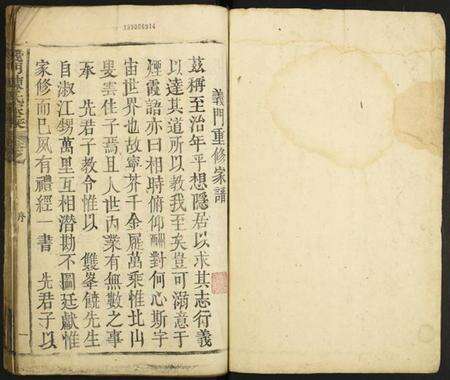 義門重修家譜
茲稱至治年平想隱居以求其志行義
以達其道所以教我至矣豈可溺意于
煙霞語亦曰相時俯仰酬對何心斯宇
宙世界也故寧芥千金屣萬乘惟北山
叟雲佳子焉且人世內業有無數之事
奉 先君子教令惟以 雙峯饒先生
自淑江 萬里互相潛勘不圖廷獻惟
家修而已夙有禮經一書 先君子以